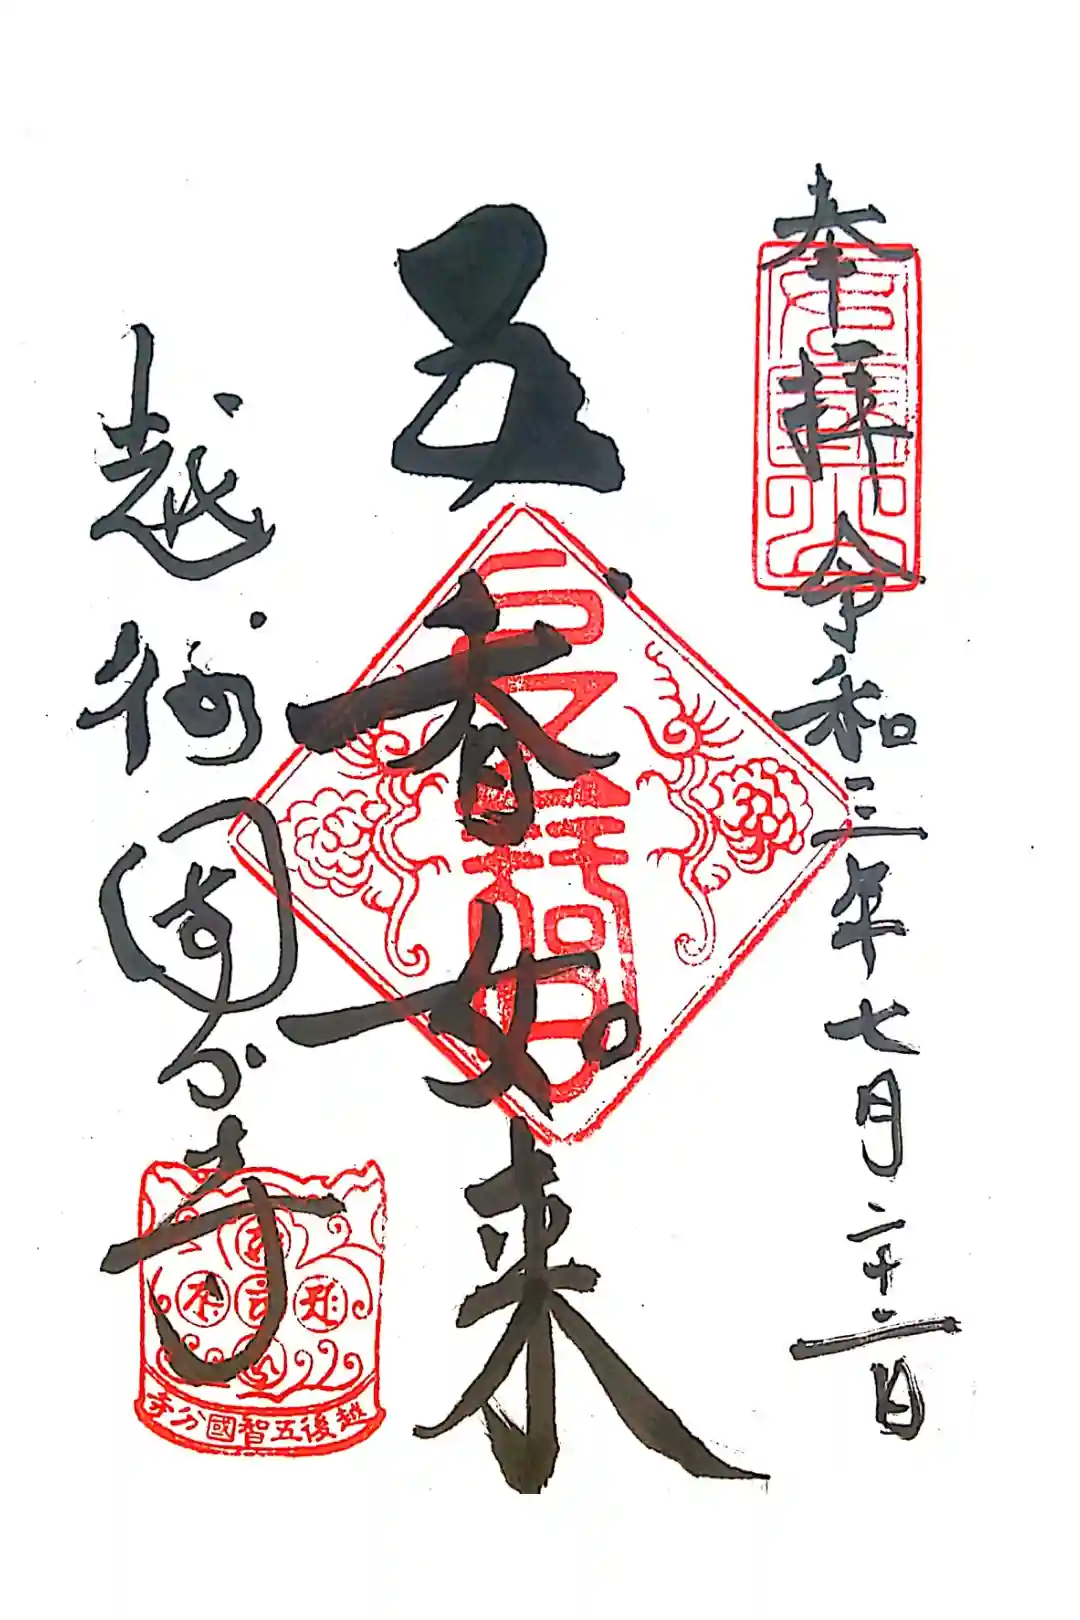 奉拝 令和三年七月二十二日
五智如来
越後国分寺
越後五智國分寺